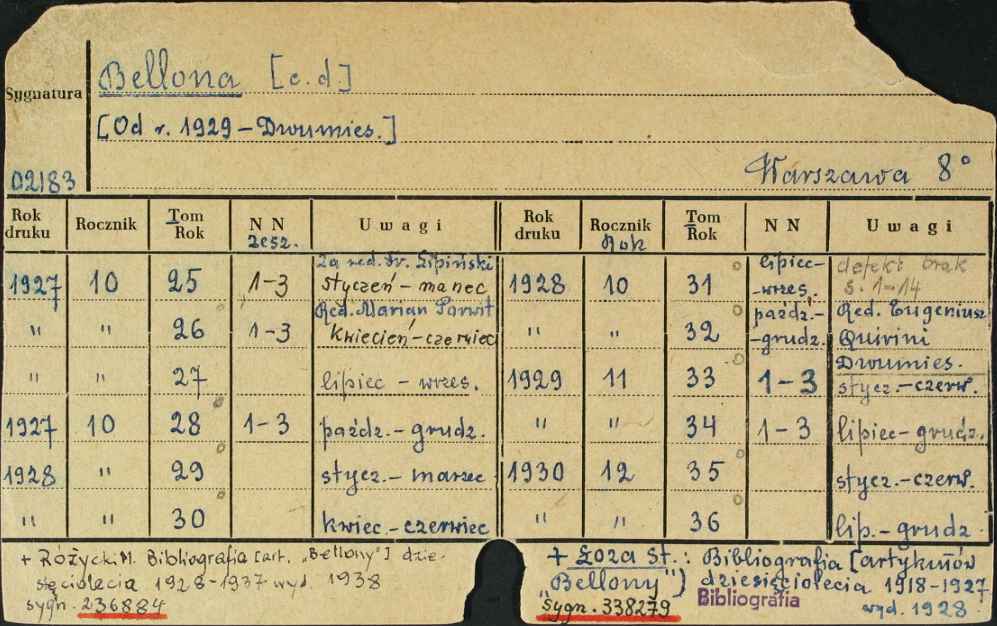 Bellona [c.d.]
Sygnatura
[Od r. 1929 – Dwumies.]
Warszawa 8°
02183
Rok druku Rocznik Tom Rok NN zesz. Uwagi Rok druku Rocznik Rok Tom Rok NN Uwagi
1927 10 25 1-3 Za red. Fr. Lipiński styczeń – marzec 1928 10 31 lipiec- -wrzes. defekt brak s. 1-14
" " 26 1-3 Red. Marian Porwit kwiecień – czerwiec " " 32 paźdź.- -grudz. Red. Eugeniusz Quirini
" " 27 lipiec – wrzes. 1929 11 33 1-3 Dwumies. stycz.-czerw.
1927 10 28 1-3 paźdz. – grudz. " " 34 1-3 lipiec-grudz.
1928 " 29 stycz. – marzec 1930 12 35 stycz.-czerw.
" " 30 kwiec – czerwiec " " 36 lip. – grudz
+ Różycki M. Bibliografia [art. „Bellony"] dzie-
sięciolecia 1928-1937 wyd. 1938
sygn. 236884
+ Łoza St.: Bibliografia [artykułów
„Bellony") dziesięciolecia 1918-1927
Bibliografia
sygn. 338279 wyd. 1928